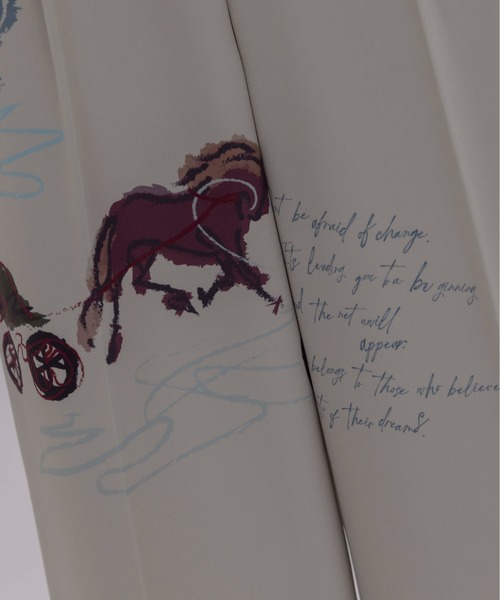 t be afraid of change.
It's leading you to a beginning.
d the net will
appear.
belongs to those who believe
of their dreams.